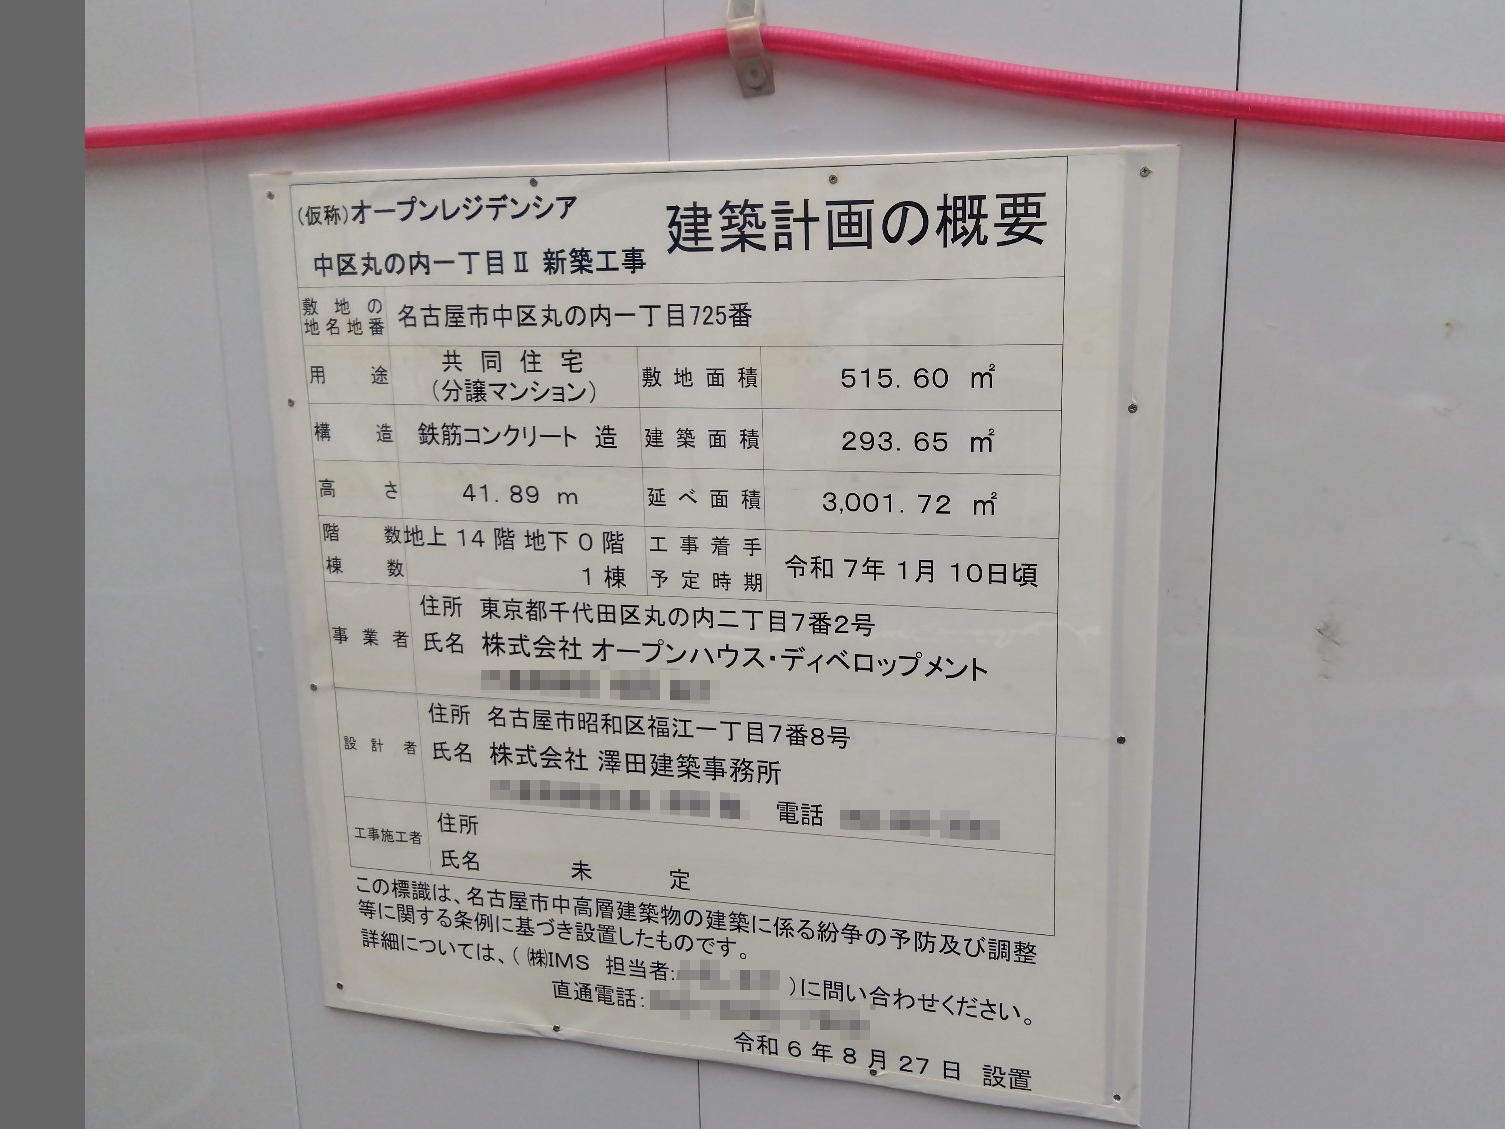 (仮称)オープンレジデンシア
中区丸の内一丁目Ⅱ 新築工事
建築計画の概要
敷地の地名地番 名古屋市中区丸の内一丁目725番
用途 共同住宅(分譲マンション) 敷地面積 515.60 ㎡
構造 鉄筋コンクリート 造 建築面積 293.65 ㎡
高さ 41.89 m 延べ面積 3,001.72 ㎡
階数 地上 14 階 地下 0 階
棟数 1 棟
工事着手予定時期 令和 7年 1月 10日頃
事業者 住所 東京都千代田区丸の内二丁目7番2号
氏名 株式会社 オープンハウス・ディベロップメント
設計者 住所 名古屋市昭和区福江一丁目7番8号
氏名 株式会社 澤田建築事務所
電話
工事施工者 住所
氏名 未定
この標識は、名古屋市中高層建築物の建築に係る紛争の予防及び調整
等に関する条例に基づき設置したものです。
詳細については、( ㈱IMS 担当者: )に問い合わせください。
直通電話:
令和 6 年 8 月 27 日 設置